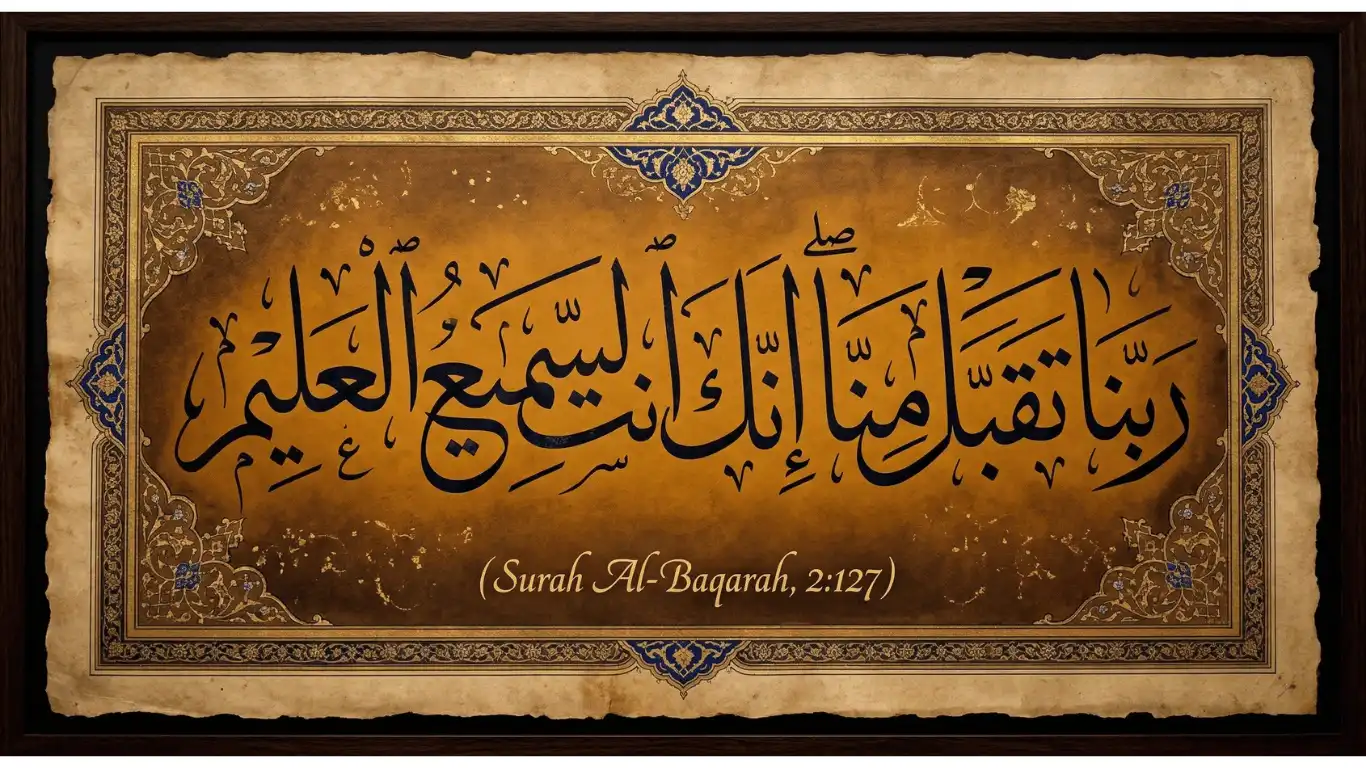 رَبَّنَا تَقَبَّلْ مِنَّا ۖ إِنَّكَ أَنتَ ٱلسَّمِيعُ ٱلْعَلِيمُ
(Surah Al-Baqarah, 2:127)